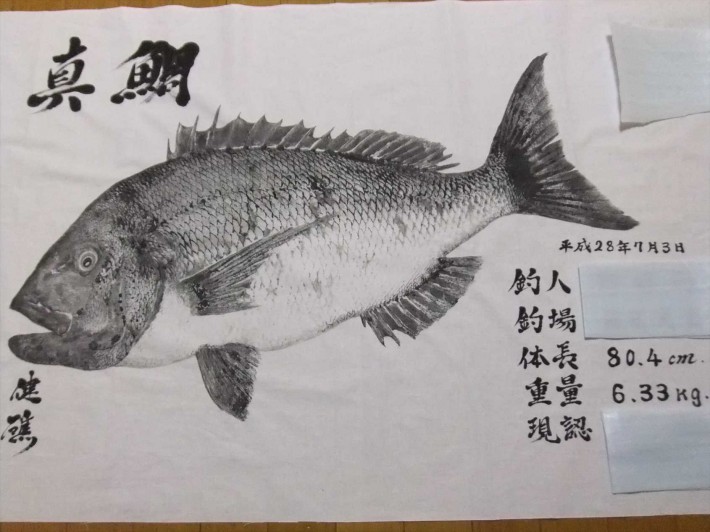 真鯛
平成28年7月3日
釣人
釣場
体長 80.4cm.
重量 6.33kg.
現認
健礁